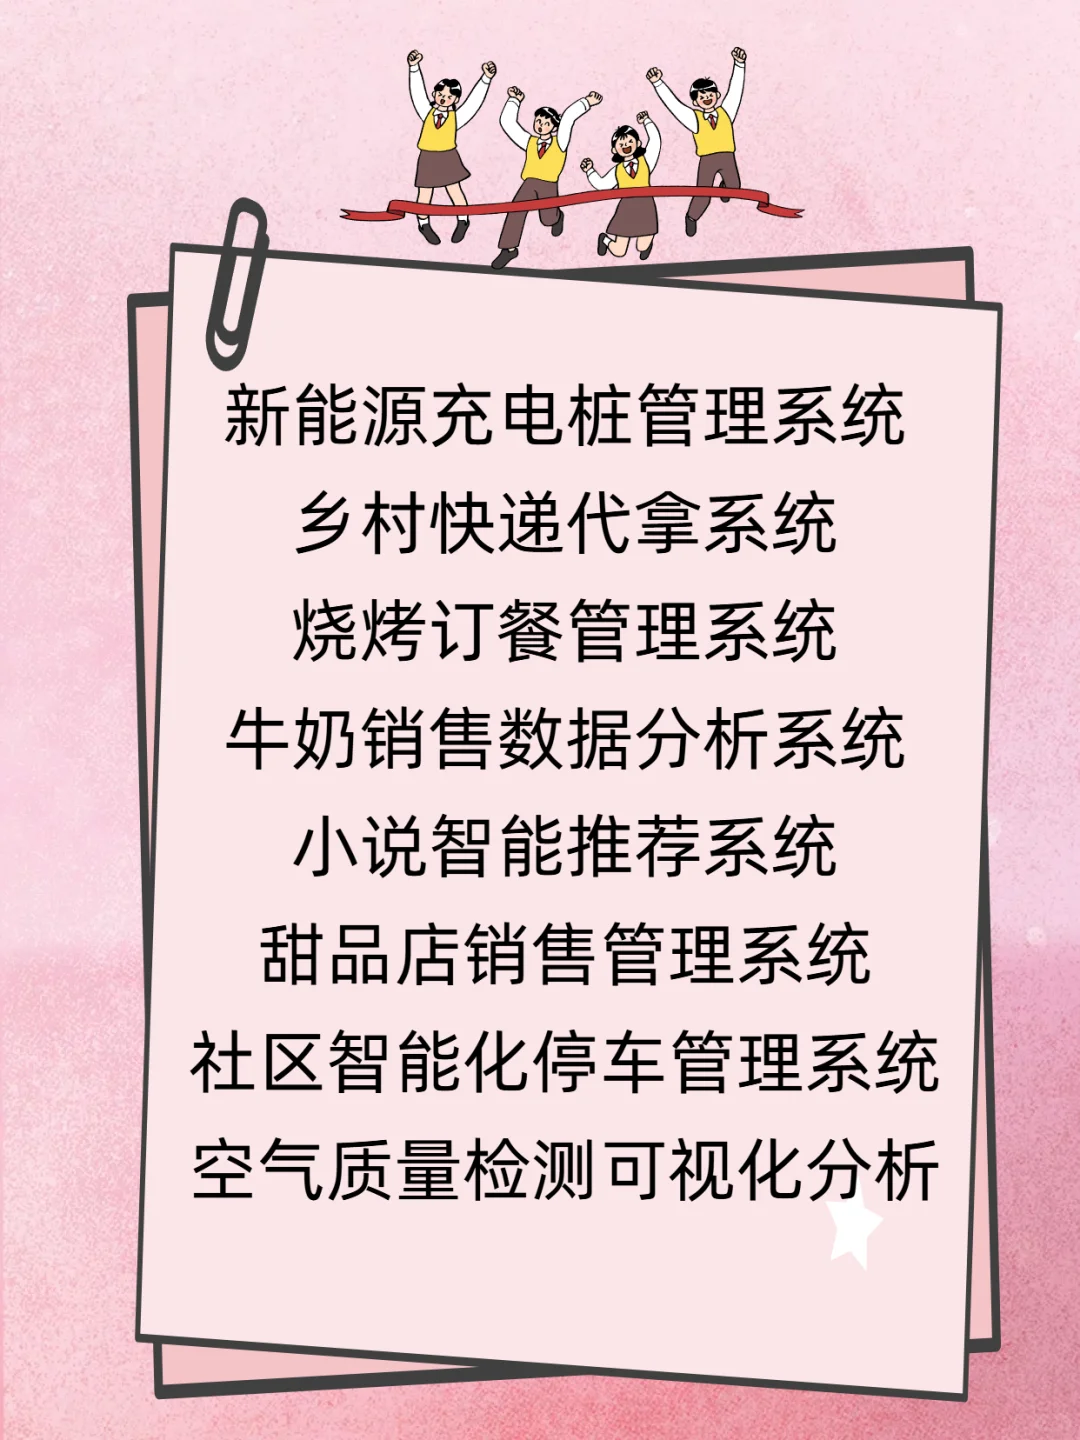 新能源充电桩管理系统
乡村快递代拿系统
烧烤订餐管理系统
牛奶销售数据分析系统
小说智能推荐系统
甜品店销售管理系统
社区智能化停车管理系统
空气质量检测可视化分析